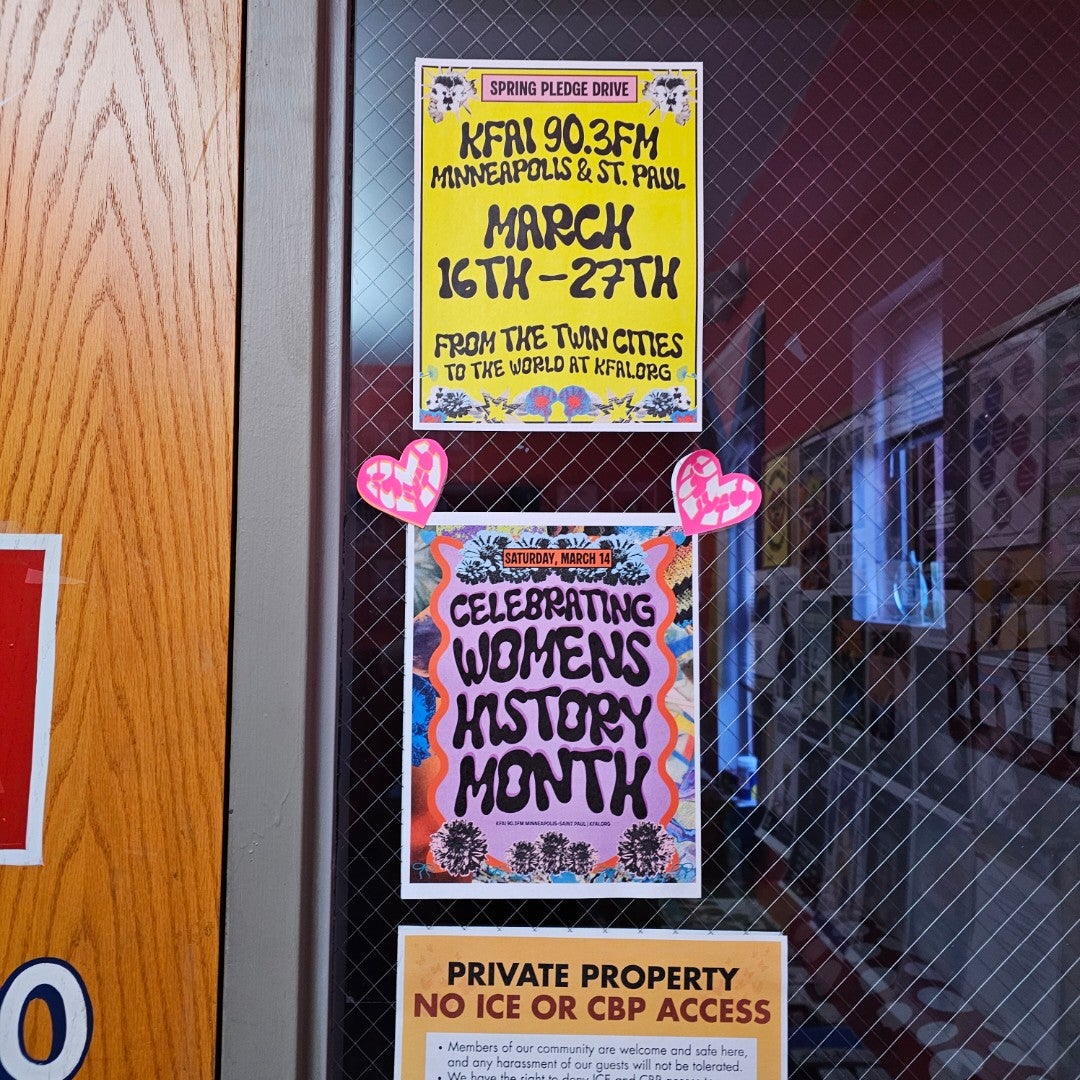 SPRING PLEDGE DRIVE
KFAI 90.3FM
MINNEAPOLIS & ST. PAUL
MARCH
16TH – 27TH
FROM THE TWIN CITIES
TO THE WORLD AT KFAI.ORG
SATURDAY, MARCH 14
CELEBRATING
WOMENS
HISTORY
MONTH
KFAI 90.3FM MINNEAPOLIS-SAINT PAUL | KFAI.ORG
PRIVATE PROPERTY
NO ICE OR CBP ACCESS
• Members of our community are welcome and safe here,
and any harassment of our guests will not be tolerated.
• We have the right to deny ICE and CBP
O